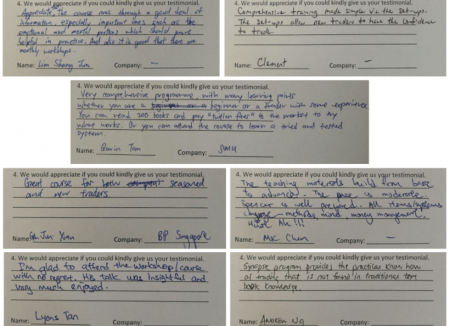 4. We would appreciate if you could kindly give us your testimonial.
Appreciate. The course runs through a good deal of
information, especially important ones such as the
emotional and mental portion which should prove
helpful in practice. And also it is good that there are
monthly workshops.
Name: Lim Shang Company: -
4. We would appreciate if you could kindly give us your testimonial.
Comprehensive training made simple via the set-ups.
The set-ups allow new traders to have the confidence
to trade.
Name: Clement Company: -
4. We would appreciate if you could kindly give us your testimonial.
Very comprehensive programme, with many learning points
whether you are a beginner or a trader with some experience.
You can read 200 books and pay "tuition fees" to the market to try
what works. Or you can attend the course to learn a tried and tested
system.
Name: Tan Company: SMU
4. We would appreciate if you could kindly give us your testimonial.
Great course for both seasoned
and new traders.
Name: Company: BP Singapore
4. We would appreciate if you could kindly give us your testimonial.
The teaching materials build from base
to advanced. The pace is moderate.
Spencer is well prepared. All items/systems
methods, mind, money management,
Name: Mac Chan Company: -
4. We would appreciate if you could kindly give us your testimonial.
I'm glad to attend the workshop/course
with no regret. His talk was insightful and
very much enjoyed.
Name: Lyons Tan Company:
4. We would appreciate if you could kindly give us your testimonial.
Synapse program provides the practical know how
of trading that is not found in traditional text
book knowledge.
Name: Andrew Ng Company: